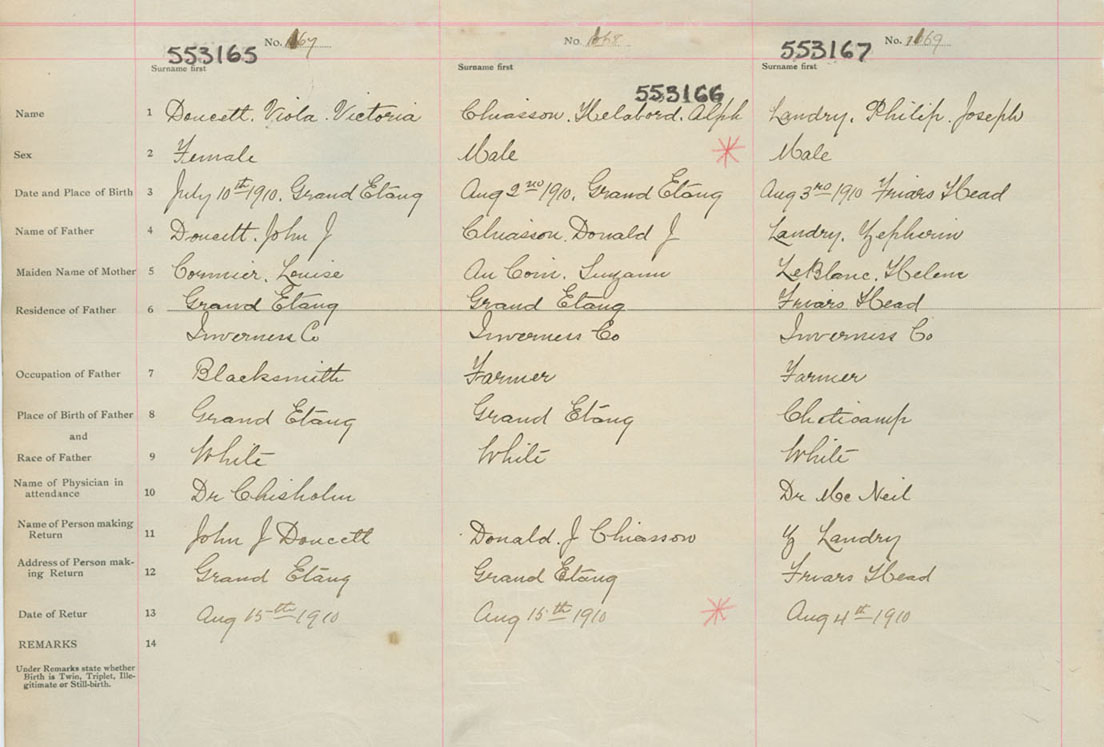 No. 167 No. 168 No. 169
553165 553167
Surname first Surname first Surname first
553166
Name 1 Doucett. Viola. Victoria Chiasson. Helabord. Alph Landry. Philip. Joseph
Sex 2 Female Male Male
Date and Place of Birth 3 July 10th 1910. Grand Etang Aug 2nd 1910. Grand Etang Aug 3rd 1910 Friars Head
Name of Father 4 Doucett. John J Chiasson. Donald J Landry. Zepherin
Maiden Name of Mother 5 Cormier. Louise Au Coin. Suzann LeBlanc. Helene
Residence of Father 6 Grand Etang Grand Etang Friars Head
Inverness Co Inverness Co Inverness Co
Occupation of Father 7 Blacksmith Farmer Farmer
Place of Birth of Father 8 Grand Etang Grand Etang Cheticamp
and
Race of Father 9 White White White
Name of Physician in
attendance 10 Dr Chisholm Dr Mc Neil
Name of Person making
Return 11 John J Doucett Donald. J Chiasson Z Landry
Address of Person mak-
ing Return 12 Grand Etang Grand Etang Friars Head
Date of Retur 13 Aug 15th 1910 Aug 15th 1910 Aug 4th 1910
REMARKS 14
Under Remarks state whether
Birth is Twin, Triplet, Ille-
gitimate or Still-birth.